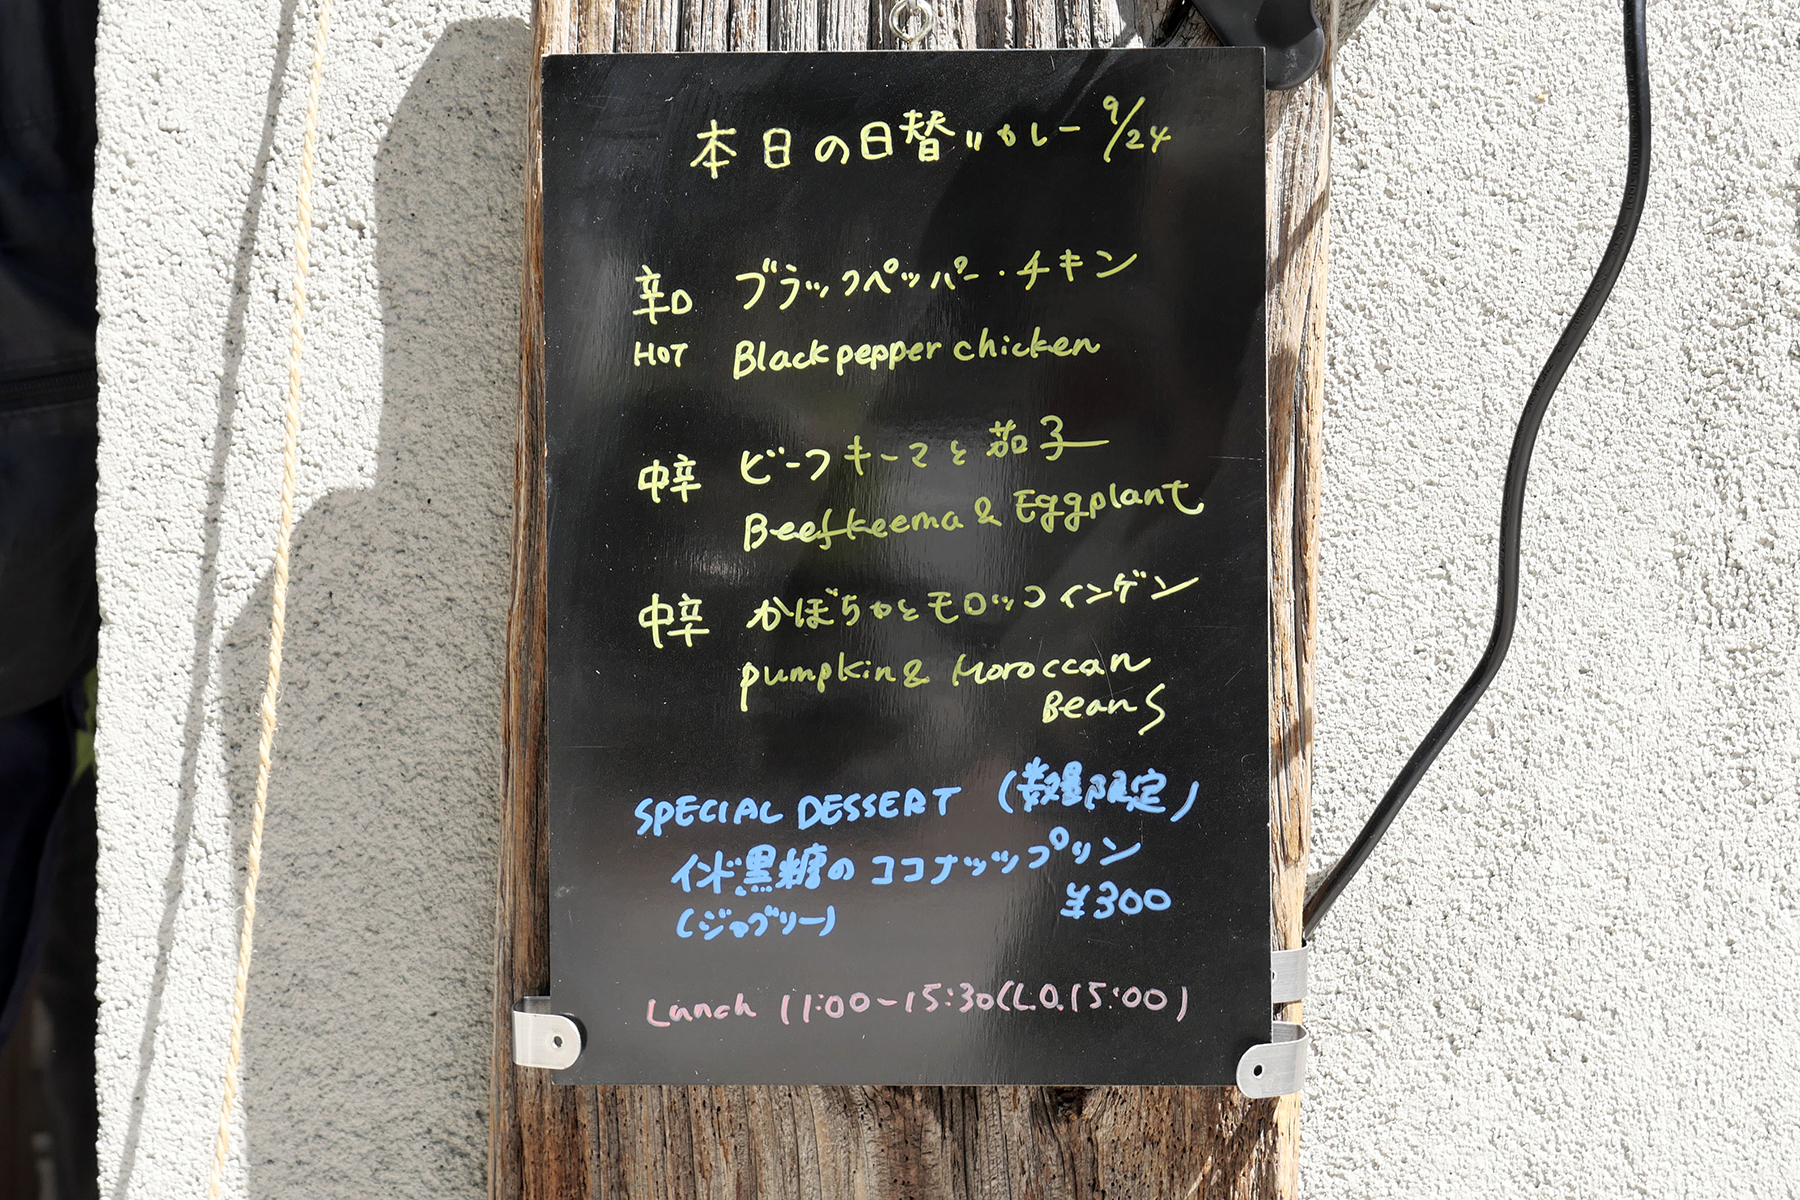 本日の日替りカレー 9/24
辛口 ブラックペッパー・チキン
HOT Black pepper chicken
中辛 ビーフキーマと茄子
Beef keema & Eggplant
中辛 かぼちゃとモロッコインゲン
pumpkin & Moroccan
Beans
SPECIAL DESSERT (数量限定)
インド黒糖のココナッツプリン
(ジャグリー) ¥300
Lunch 11:00-15:30(L.O.15:00)